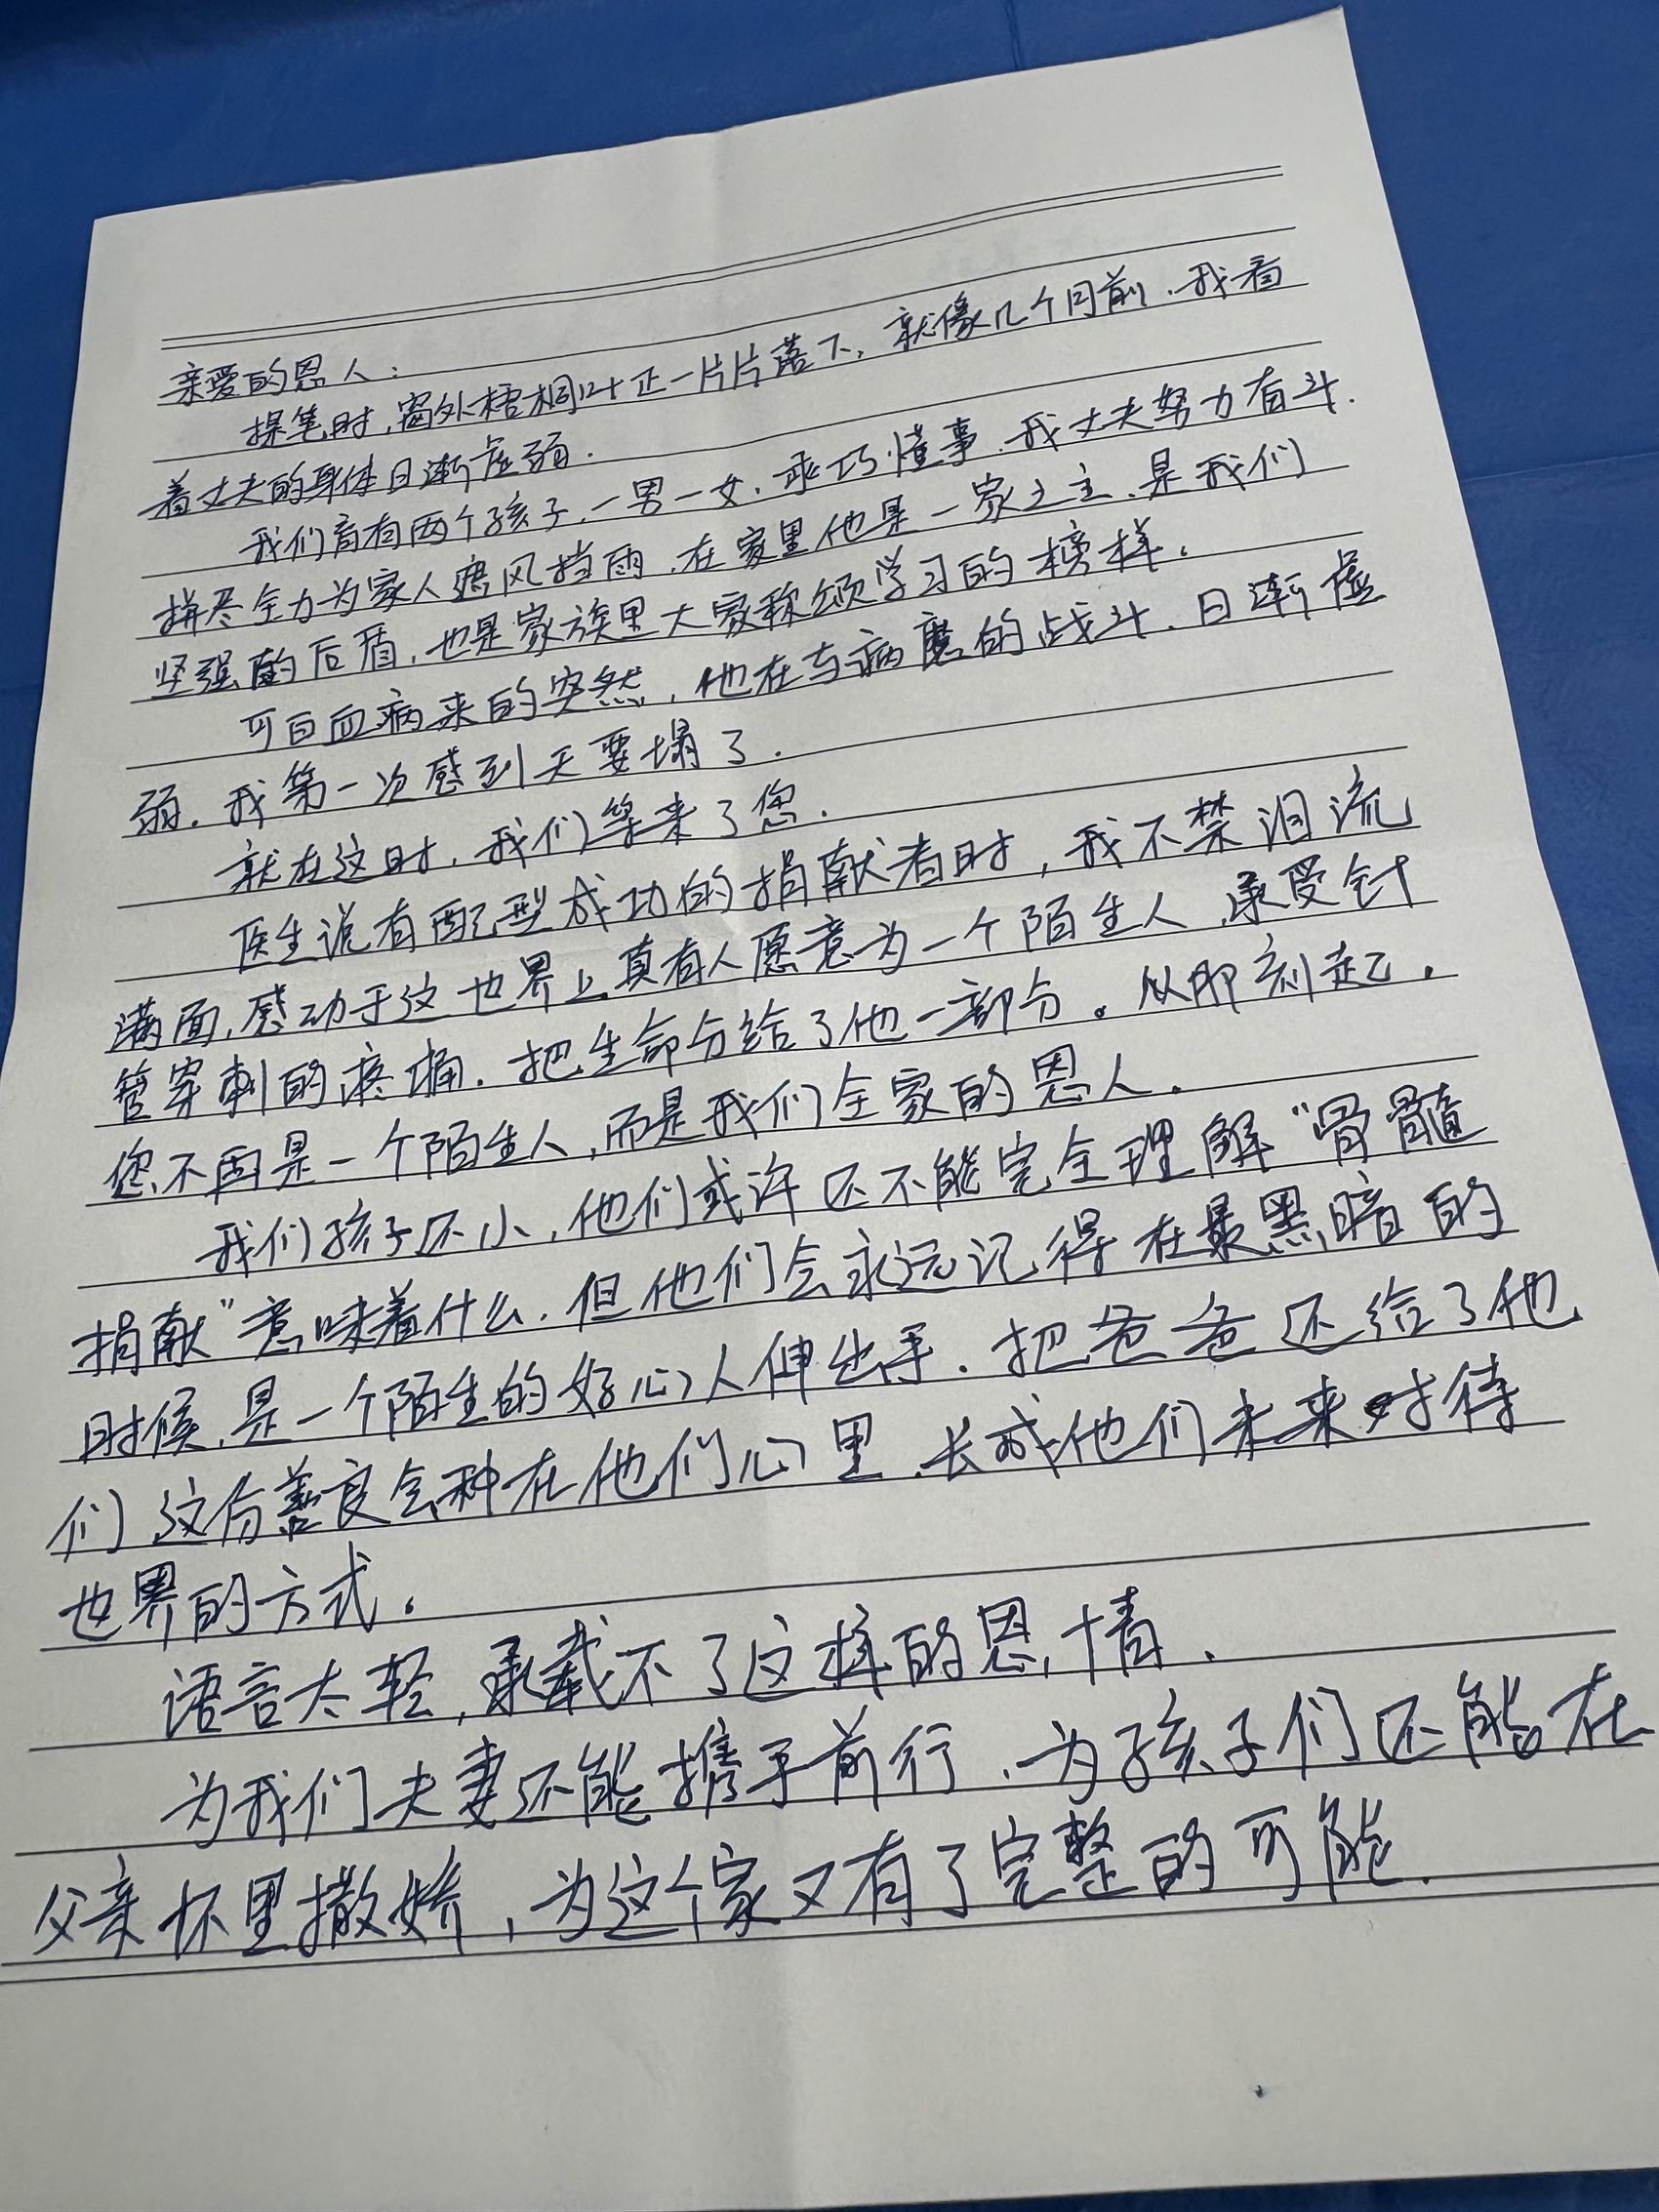 亲爱的恩人：
提笔时，窗外梧桐叶正一片片落下，就像几个月前，我看
着丈夫的身体日渐虚弱．
我们育有两个孩子，一男一女，乖巧懂事，我丈夫努力奋斗．
拼尽全力为家人遮风挡雨，在家里他是一家之主，是我们
坚强的后盾，也是家族里大家称颂学习的榜样．
可白血病来的突然，他在与病魔的战斗，日渐虚
弱．我第一次感到天要塌了．
就在这时，我们等来了您．
医生说有配型成功的捐献者时，我不禁泪流
满面，感动于这世界上真有人愿意为一个陌生人，承受针
管穿刺的疼痛．把生命分给了他一部分。从那刻起，
您不再是一个陌生人，而是我们全家的恩人．
我们孩子还小，他们或许还不能完全理解“骨髓
捐献”意味着什么，但他们会永远记得在最黑暗的
时候，是一个陌生的好心人伸出手．把爸爸还给了他
们，这份善良会种在他们心里，长成他们未来对待
世界的方式。
语言太轻，承载不了这样的恩情．
为我们夫妻还能携手前行，为孩子们还能在
父亲怀里撒娇，为这个家又有了完整的可能．